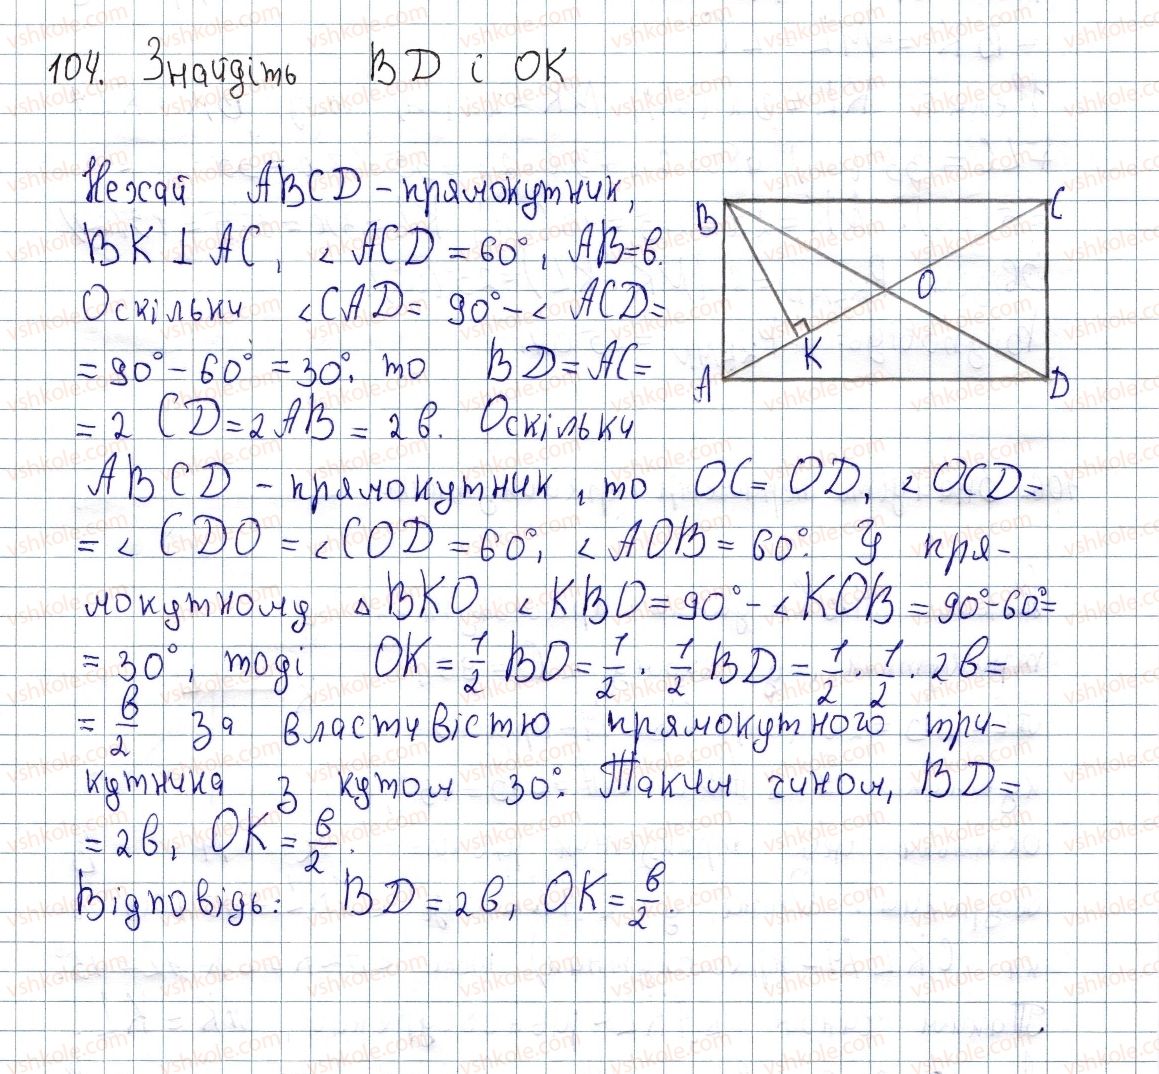 104. Знайдіть BD і OK
Нехай ABCD – прямокутник,
BK ⊥ AC, ∠ACD = 60°, AB = в.
Оскільки ∠CAD = 90° – ∠ACD =
= 90° – 60° = 30°, то BD = AC =
= 2 CD = 2AB = 2в. Оскільки
ABCD – прямокутник, то OC = OD, ∠OCD =
= ∠CDO = ∠COD = 60°, ∠AOB = 60°. У пря-
мокутному △BKO ∠KBO = 90° – ∠KOB = 90° – 60° =
= 30°, тоді OK = 1/2 BO = 1/2 · 1/2 BD = 1/2 · 1/2 · 2в =
= в/2 За властивістю прямокутного три-
кутника з кутом 30°. Таким чином, BD =
= 2в, OK = в/2.
Відповідь: BD = 2в, OK = в/2.
B
C
O
K
A
D
vshkole.com